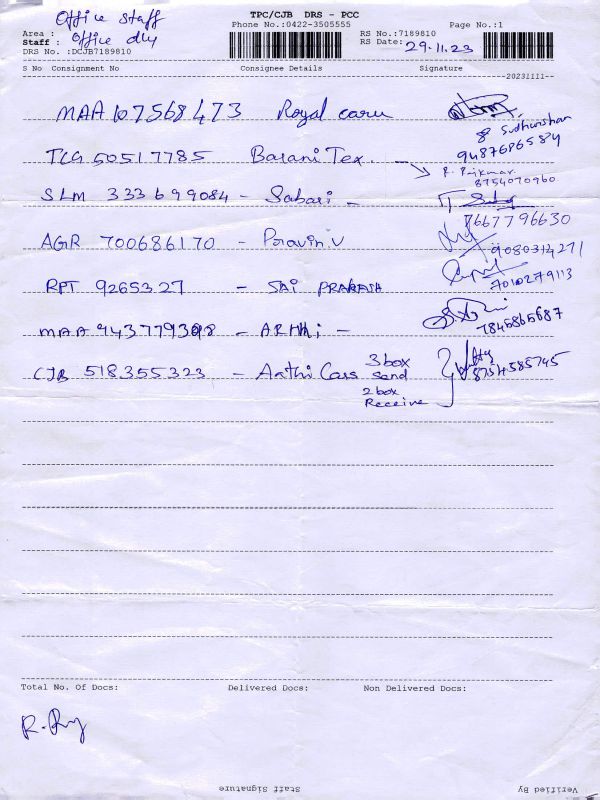 TPC/CJB DRS - PCC
Office staff
Phone No.:0422-3505555 Page No.:1
Area :
Staff : Office dly
RS No.:7189810
RS Date: 29.11.23
DRS No. :DCJB7189810
S No Consignment No Consignee Details Signature
20231111
MAA 107568473 Royal care
Sudharshan
9487686584
TCG 50517785 Barani Tex.
8754070960
SLM 333699084 - Sabari -
8667796630
AGR 700686170 - Pravin V
9080314271
RPT 9265327 - SAI PRAKASH
7010279113
MAA 943779398 - ARthi -
7845865687
CJB 518355323 - Aathi Cars 3 box send
8754585745
2 box Receive
Total No. Of Docs: Delivered Docs: Non Delivered Docs:
Staff Signature Verified By